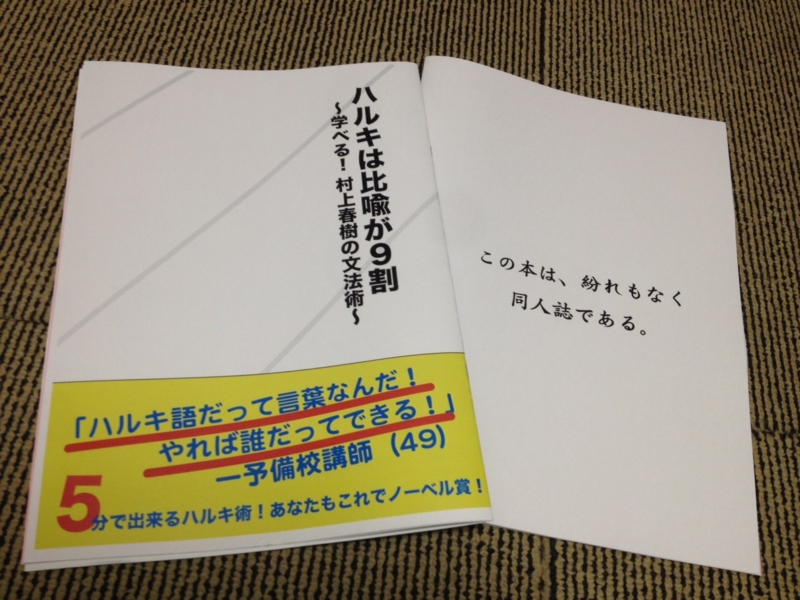 ハルキは比喩が９割
～学べる！ 村上春樹の文法術～
「ハルキ語だって言葉なんだ！
やれば誰だってできる！」
―予備校講師 （49）
5分で出来るハルキ術！あなたもこれでノーベル賞！
この本は、紛れもなく
同人誌である。